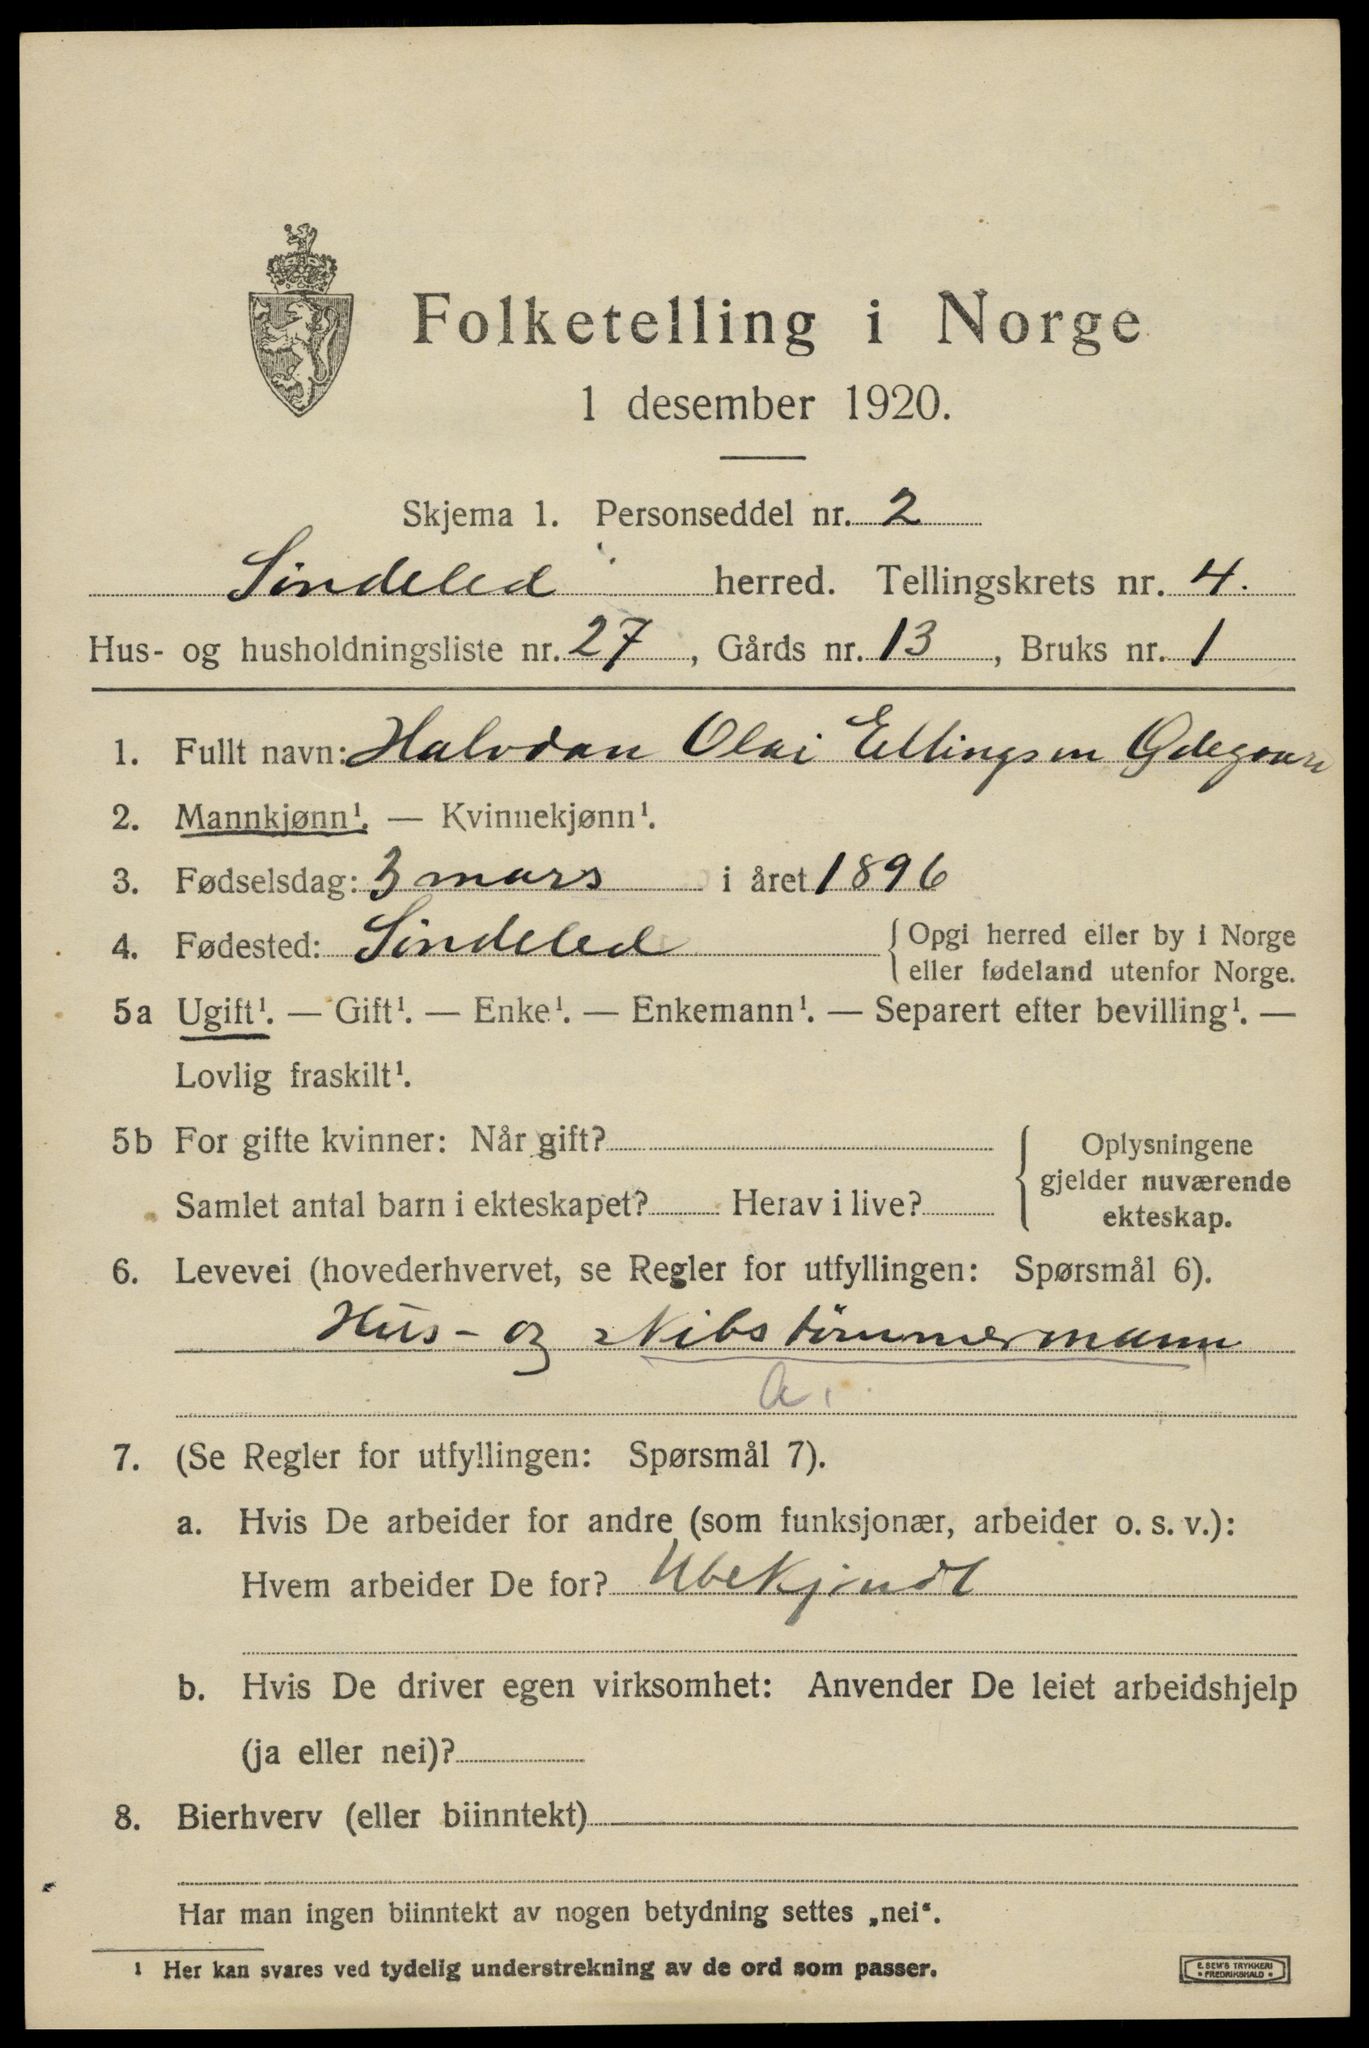 Folketelling i Norge
1 desember 1920.
Skjema 1. Personseddel nr. 2
Söndeled herred. Tellingskrets nr. 4.
Hus- og husholdningsliste nr. 27, Gårds nr. 13, Bruks nr. 1
1. Fullt navn: Halvdan Olai Ellingsen Ødegaard
2. Mannkjønn¹. — Kvinnekjønn¹.
3. Fødselsdag: 3 mars i året 1896
4. Fødested: Söndeled { Opgi herred eller by i Norge
eller fødeland utenfor Norge.
5a Ugift¹. — Gift¹. — Enke¹. — Enkemann¹. — Separert efter bevilling¹. —
Lovlig fraskilt¹.
5b For gifte kvinner: Når gift? { Oplysningene
gjelder nuværende
Samlet antal barn i ekteskapet? Herav i live?
ekteskap.
6. Levevei (hovederhvervet, se Regler for utfyllingen: Spørsmål 6).
Hus- og Skibstömmermann
a.
7. (Se Regler for utfyllingen: Spørsmål 7).
a. Hvis De arbeider for andre (som funksjonær, arbeider o. s. v.):
Hvem arbeider De for? Ubekjendt
b. Hvis De driver egen virksomhet: Anvender De leiet arbeidshjelp
(ja eller nei)?
8. Bierhverv (eller biinntekt)
Har man ingen biinntekt av nogen betydning settes „nei“.
¹ Her kan svares ved tydelig understrekning av de ord som passer.
E. SEM'S TRYKKERI
• FREDRIKSHALD •